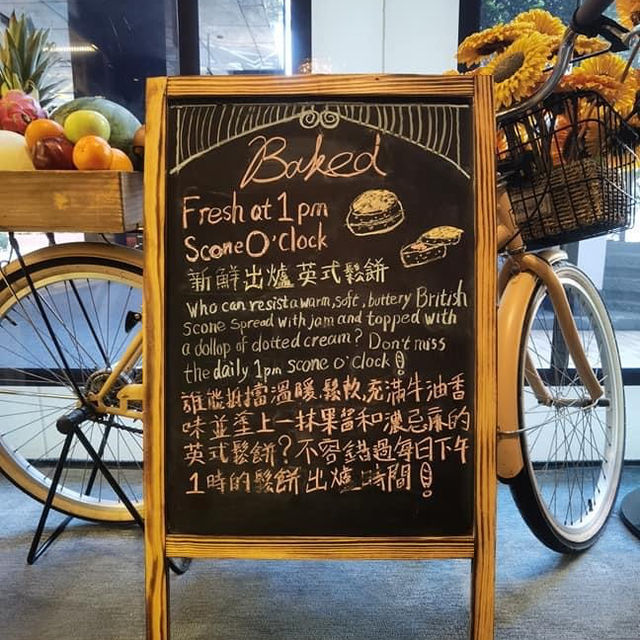 Baked
Fresh at 1pm
Scone O'clock
新鮮出爐英式鬆餅
Who can resist a warm, soft, buttery British
scone spread with jam and topped with
a dollop of clotted cream? Don't miss
the daily 1pm scone o'clock!
誰能抵擋溫暖,鬆軟,充滿牛油香
味並塗上一抹果醬和濃忌廉的
英式鬆餅?不容錯過每日下午
1時的鬆餅出爐時間!